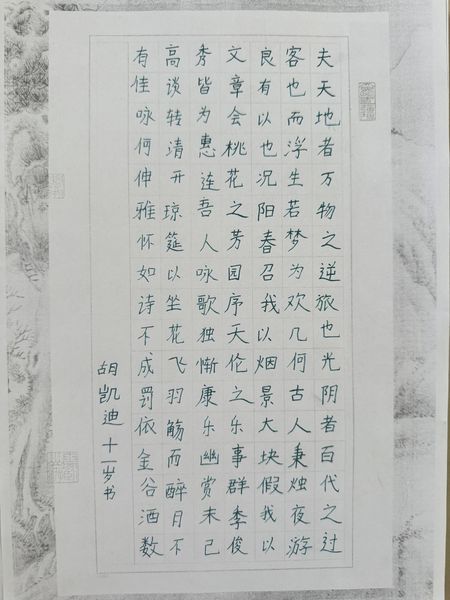 夫天地者万物之逆旅也光阴者百代之过
客也而浮生若梦为欢几何古人秉烛夜游
良有以也况阳春召我以烟景大块假我以
文章会桃花之芳园序天伦之乐事群季俊
秀皆为惠连吾人咏歌独惭康乐幽赏未已
高谈转清开琼筵以坐花飞羽觞而醉月不
有佳咏何伸雅怀如诗不成罚依金谷酒数
胡凯迪十一岁书